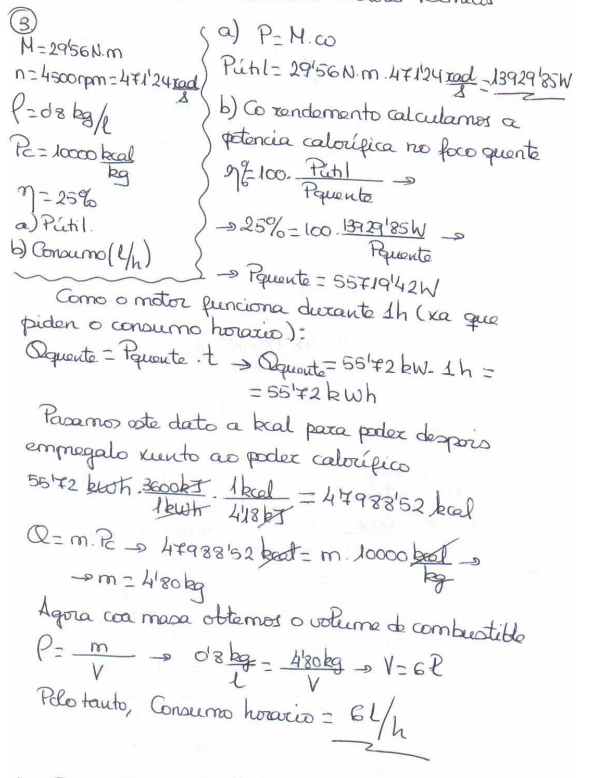 ③
M = 29'56 N.m
n = 4500 rpm = 471'24 rad/s
ρ = 0'8 kg/l
Pc = 10000 kcal/kg
η = 25%
a) Pútil.
b) Consumo (l/h)
a) P = M.ω
Pútil = 29'56 N.m . 471'24 rad/s = 13929'85 W
b) Co rendemento calculamos a
potencia calorífica no foco quente
η% = 100 . Pútil/Pquente →
→ 25% = 100 . 13929'85 W/Pquente →
→ Pquente = 55719'42 W
Como o motor funciona durante 1h (xa que
piden o consumo horario):
Qquente = Pquente . t → Qquente = 55'72 kW . 1h =
= 55'72 kWh
Pasamos este dato a kcal para poder despois
empregalo xunto ao poder calorífico
55'72 kWh . 3600 kJ/1 kWh . 1 kcal/4'18 kJ = 47988'52 kcal
Q = m . Pc → 47988'52 kcal = m . 10000 kcal/kg →
→ m = 4'80 kg
Agora coa masa obtemos o volume de combustible
ρ = m/V → 0'8 kg/l = 4'80 kg/V → V = 6 l
Polo tanto, Consumo horario = 6 L/h